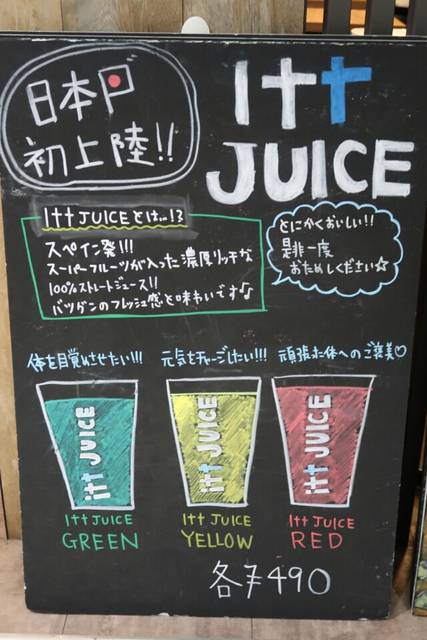 日本
初上陸!!
itt
JUICE
itt JUICEとは…!?
スペイン発!!!
スーパーフルーツが入った濃厚リッチな
100%ストレートジュース!!
バツグンのフレッシュ感と味わいです♪
とにかくおいしい!!
是非一度
おためしください☆
体を目覚めさせたい!!!
元気をチャージしたい!!!
頑張った体へのご褒美♡
itt JUICE
itt JUICE
itt JUICE
itt JUICE
GREEN
itt JUICE
YELLOW
itt JUICE
RED
各¥490